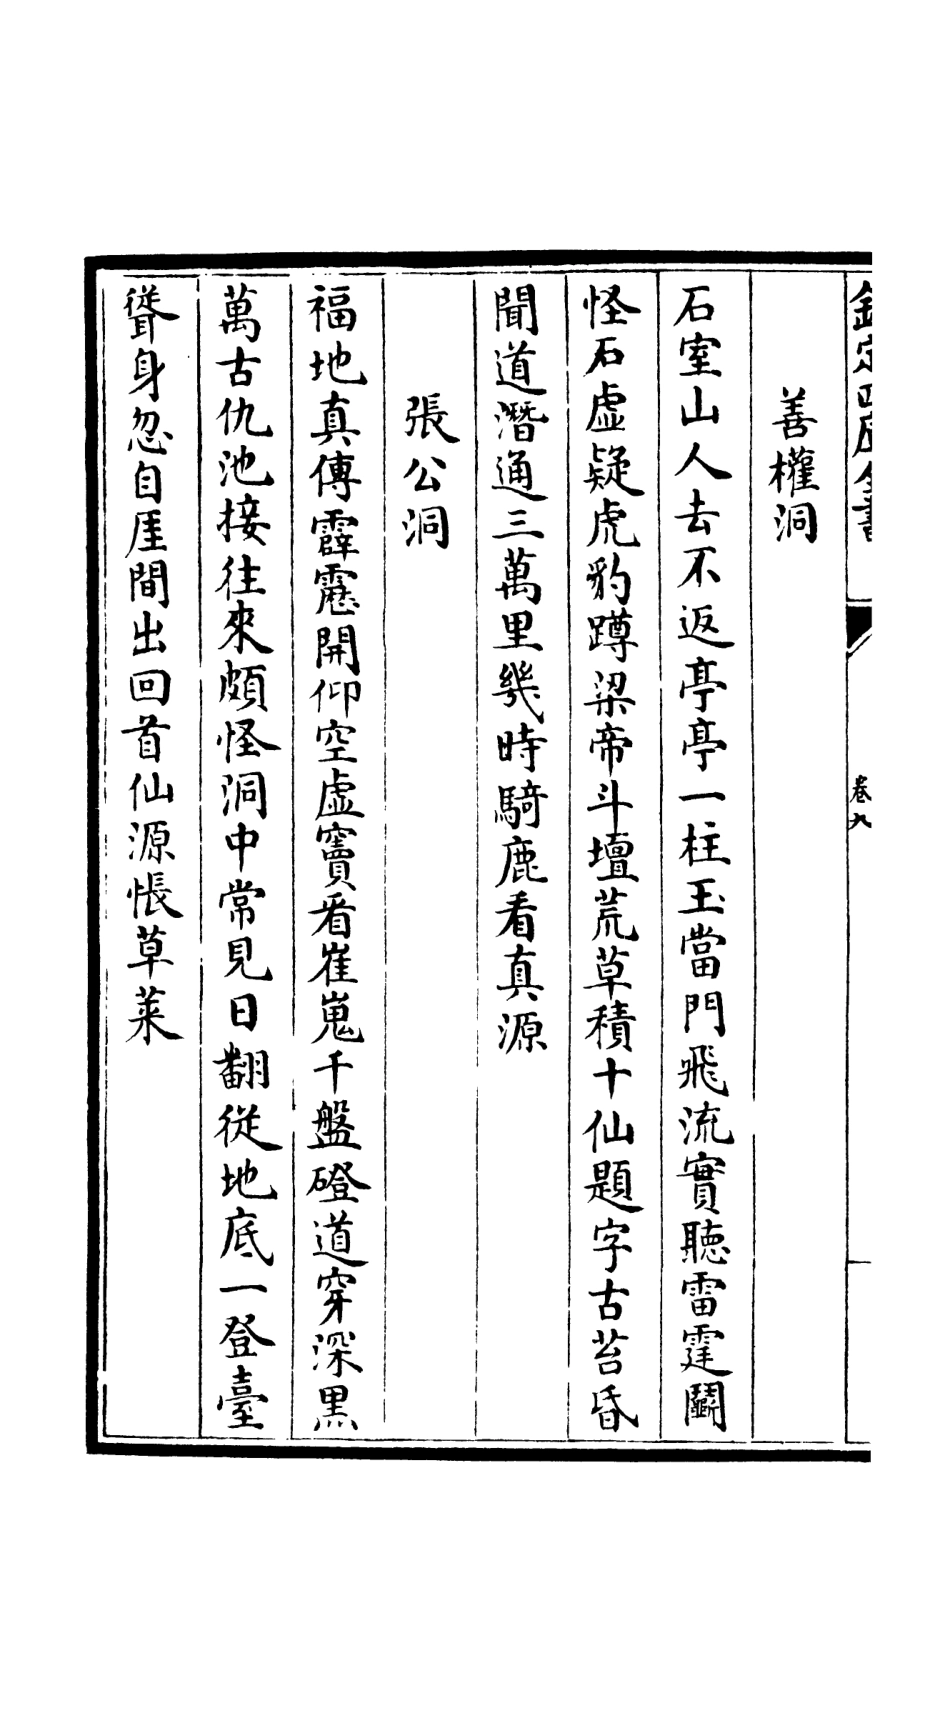 欽定四庫全書
卷九
善權洞
石室山人去不返亭亭一柱玉當門飛流實聽雷霆鬭
怪石虛疑虎豹蹲梁帝斗壇荒草積十仙題字古苔昏
聞道潛通三萬里幾時騎鹿看真源
張公洞
福地真傳霹靂開仰空虛竇看崔嵬千盤磴道穿深黑
萬古仇池接往來頗怪洞中常見日翻從地底一登臺
聳身忽自厓間出回首仙源悵草萊